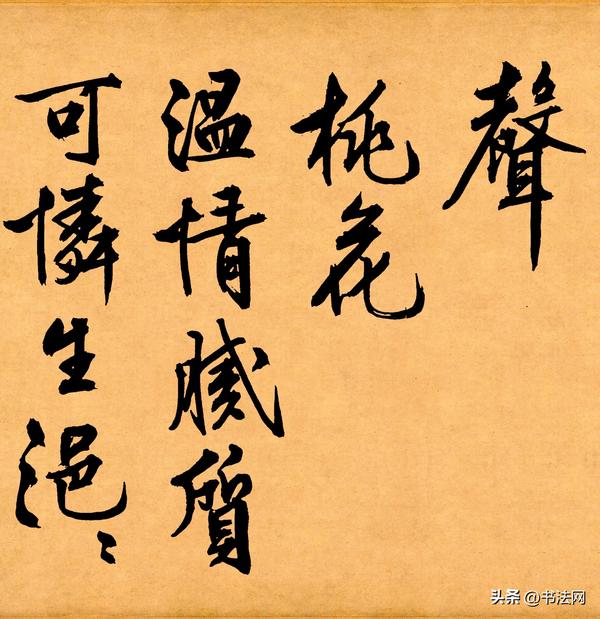 聲
桃花
溫情膩質
可憐生浥〻
头条 @书法网